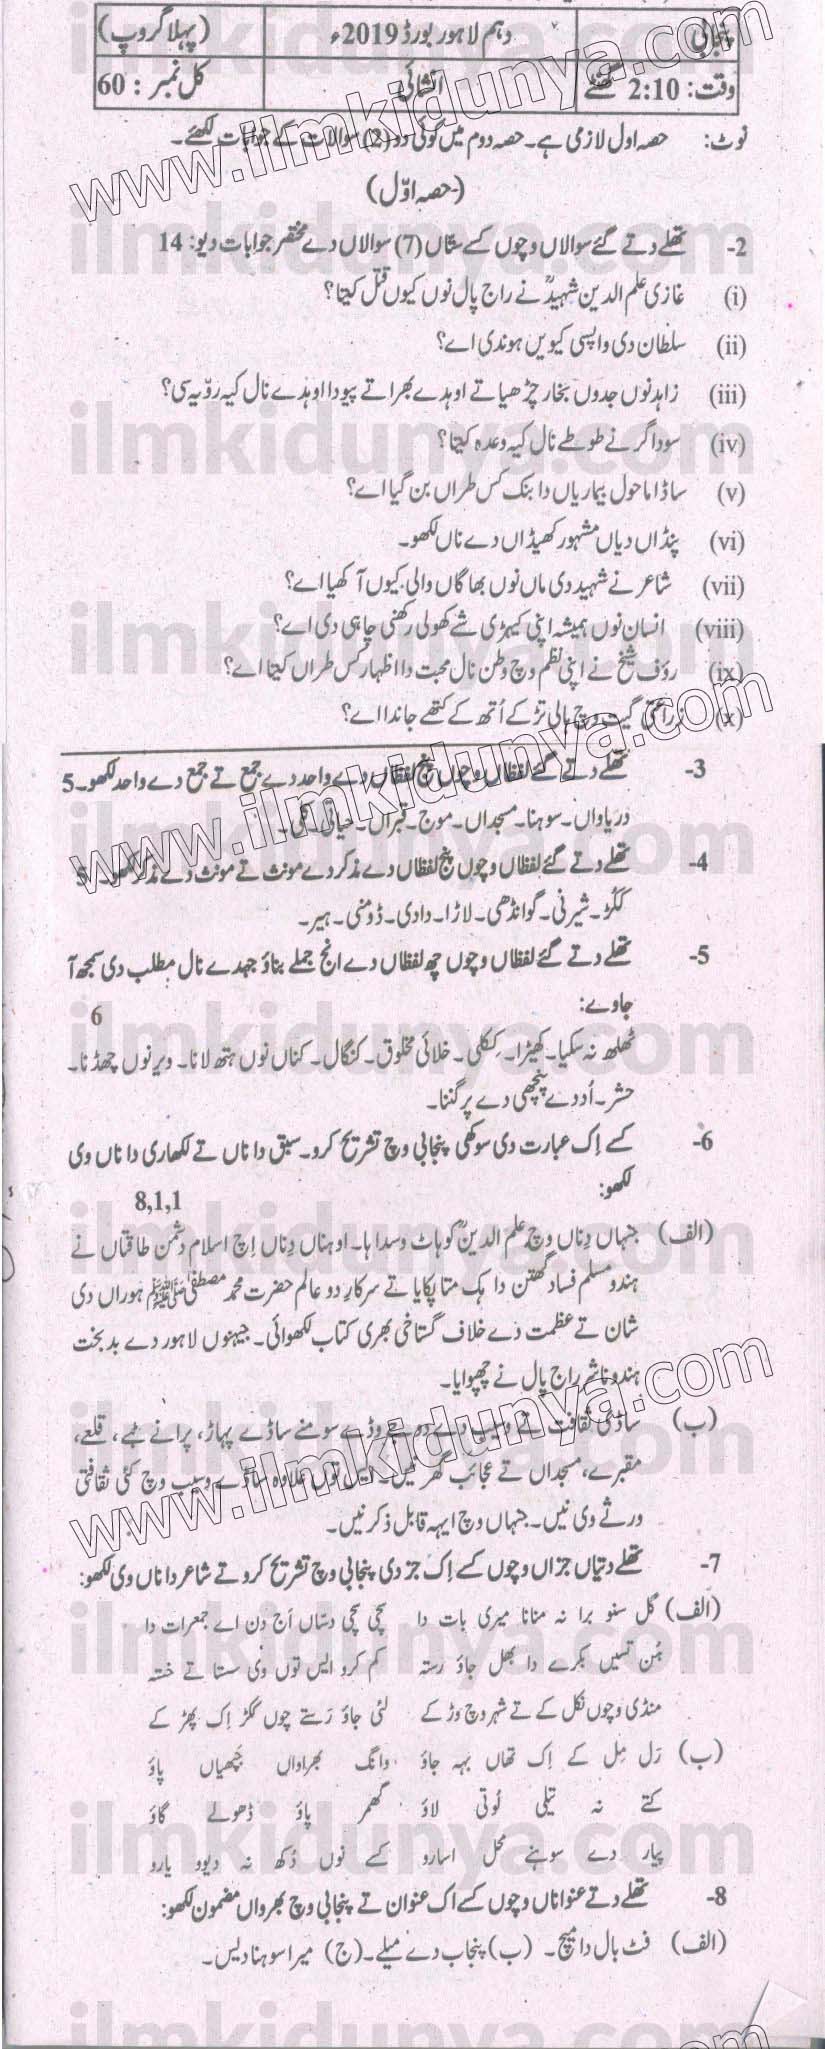 پنجابی دہم لاہور بورڈ 2019ء (پہلا گروپ)
وقت: 2:10 گھنٹے انشائی کل نمبر: 60
نوٹ: حصہ اول لازمی ہے۔ حصہ دوم میں کوئی دو (2) سوالات کے جوابات لکھئے۔
(حصہ اوّل)
2- تھلے دتے گئے سوالاں وچوں کسے ستاں (7) سوالاں دے مختصر جوابات دیو: 14
(i) غازی علم الدین شہیدؒ نے راج پال نوں کیوں قتل کیتا؟
(ii) سلطان دی واپسی کیویں ہوندی اے؟
(iii) زاہد نوں جدوں بخار چڑھیا تے اوہدے بھرا تے پیو دا اوہدے نال کیہ رویہ سی؟
(iv) سوداگر نے طوطے نال کیہ وعدہ کیتا؟
(v) ساڈا ماحول بیماریاں دا بنک کس طراں بن گیا اے؟
(vi) پنڈاں دیاں مشہور کھیڈاں دے ناں لکھو۔
(vii) شاعر نے شہید دی ماں نوں بھاگاں والی کیوں آکھیا اے؟
(viii) انسان نوں ہمیشہ اپنی کیہڑی شے کھولی رکھنی چاہی دی اے؟
(ix) رؤف شیخ نے اپنی نظم وچ وطن نال محبت دا اظہار کس طراں کیتا اے؟
(x) زراعتی گیت وچ ہالی تڑکے اُٹھ کے کتھے جاندا اے؟
3- تھلے دتے گئے لفظاں وچوں پنج لفظاں دے واحد دے جمع تے جمع دے واحد لکھو۔ 5
دریاواں۔ سوہنا۔ مسجداں۔ موج۔ قبراں۔ حیاتی۔ کلی۔
4- تھلے دتے گئے لفظاں وچوں پنج لفظاں دے مذکر دے مونث تے مونث دے مذکر لکھو۔ 5
ککڑ۔ شیرنی۔ گوانڈھی۔ لاڑا۔ دادی۔ ڈومنی۔ ہیر۔
5- تھلے دتے گئے لفظاں وچوں چھ لفظاں دے انج جملے بناؤ جہدے نال مطلب دی سمجھ آ
جاوے: 6
ٹھلھ نہ سکیا۔ کھیڑا۔ کِکلی۔ خلائی مخلوق۔ کنگال۔ کناں نوں ہتھ لانا۔ ویر نوں چھڈنا۔
حشر۔ اُڈدے پنچھی دے پر گننا۔
6- کسے اِک عبارت دی سوکھی پنجابی وچ تشریح کرو۔ سبق دا ناں تے لکھاری دا ناں وی
لکھو: 8,1,1
(الف) جنہاں دِناں وچ علم الدینؒ کوہاٹ وسدا ہا۔ اوہناں دِناں اِچ اسلام دشمن طاقتاں نے
ہندو مسلم فساد گھتن دا ہک متا پکایا تے سرکارِ دو عالم حضرت محمد مصطفیٰ ﷺ ہوراں دی
شان تے عظمت دے خلاف گستاخی بھری کتاب لکھوائی۔ جیہنوں لاہور دے بدبخت
ہندو ناشر راج پال نے چھپوایا۔
(ب) ساڈی ثقافت تے وسیب دے دوجے وڈے سومنے ساڈے پہاڑ، پرانے ٹبے، قلعے،
مقبرے، مسجداں تے عجائب گھر نیں۔ ایس توں علاوہ ساڈے وسیب وچ کئی ثقافتی
ورثے وی نیں۔ جنہاں وچ ایہہ قابل ذکر نیں۔
7- تھلے دتیاں جزاں وچوں کسے اِک جز دی پنجابی وچ تشریح کرو تے شاعر دا ناں وی لکھو:
(الف) گل سنو برا نہ منانا میری بات دا سچی سچی دسّاں اَج دن اے جمعرات دا
ہُن تسیں بکرے دا بھل جاؤ رستہ کم کرو ایس توں وی سستا تے خستہ
منڈی وچوں نکل کے تے شہر وچ وڑ کے لئی جاؤ رَستے چوں ککڑ اِک پھڑ کے
(ب) رَل مِل کے اِک تھاں بہہ جاؤ وانگ بھراواں چَھپیاں پاؤ
کتے نہ تیلی لُوتی لاؤ گھمر پاؤ ڈھولے گاؤ
پیار دے سوہنے محل اسارو کسے نوں دُکھ نہ دیوو یارو
8- تھلے دتے عنواناں وچوں کسے اک عنوان تے پنجابی وچ بھرواں مضمون لکھو:
(الف) فٹ بال دا میچ۔ (ب) پنجاب دے میلے۔ (ج) میرا سوہنا دیس۔
ilmkidunya.com
www.ilmkidunya.com